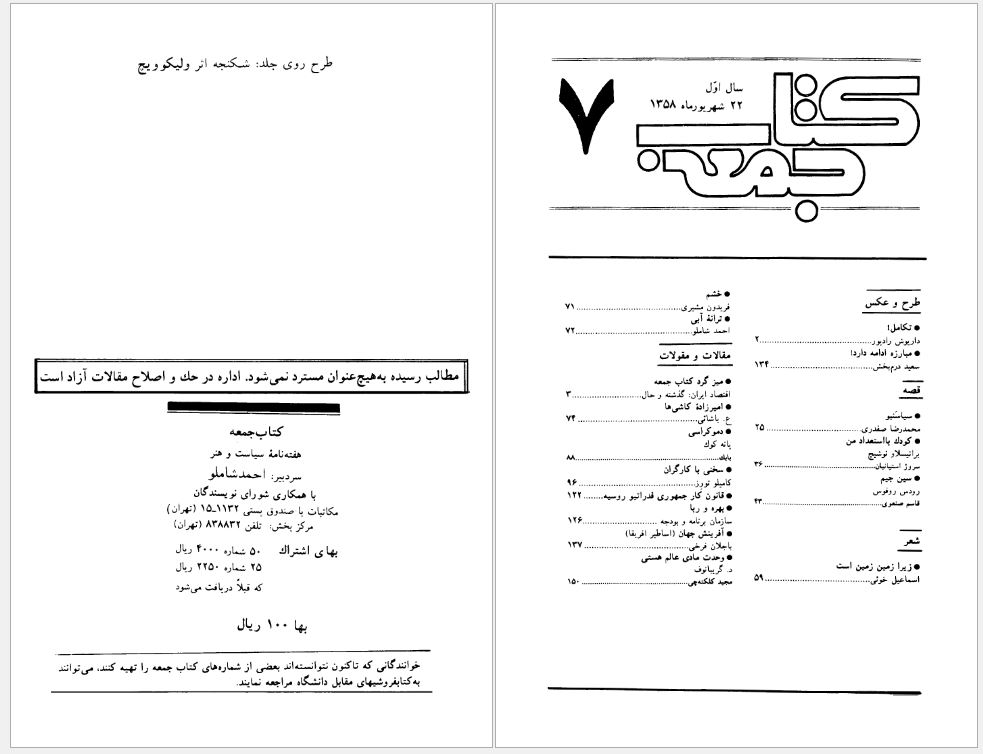 کتاب جمعه
سال اوّل
۲۲ شهریورماه ۱۳۵۸
۷
طرح و عکس
● تکامل!
داریوش رادپور..........۲
● مبارزه ادامه دارد!
سعید درم‌بخش..........۱۳۴
قصه
● سیاسنبو
محمدرضا صفدری..........۲۵
● کودک بااستعداد من
برانیسلاو نوشیچ
سروژ استپانیان..........۳۶
● سین جیم
رودس روفوس
قاسم صنعوی..........۴۳
شعر
● زیرا زمین زمین است
اسماعیل خوئی..........۵۹
● خشم
فریدون مشیری..........۷۱
● ترانهٔ آبی
احمد شاملو..........۷۲
مقالات و مقولات
● میز گرد کتاب جمعه
اقتصاد ایران: گذشته و حال..........۳
● امیرزادهٔ کاشی‌ها
ع. پاشائی..........۷۴
● دموکراسی
یانه کوک
بابك..........۸۸
● سخنی با کارگران
کامیلو تورز..........۹۶
● قانون کار جمهوری فدراتیو روسیه..........۱۲۲
● بهره و ربا
سازمان برنامه و بودجه..........۱۲۶
● آفرینش جهان (اساطیر افریقا)
باجلان فرخی..........۱۳۷
● وحدت مادی عالم هستی
د. گریبانوف
مجید کلکته‌چی..........۱۵۰
طرح روی جلد: شکنجه اثر ولیکوویچ
مطالب رسیده به‌هیچ‌عنوان مسترد نمی‌شود. اداره در حك و اصلاح مقالات آزاد است
کتاب‌جمعه
هفته‌نامهٔ سیاست و هنر
سردبیر: احمدشاملو
با همکاری شورای نویسندگان
مکاتبات با صندوق پستی ۱۱۳۲ـ۱۵ (تهران)
مرکز پخش: تلفن ۸۳۸۸۳۲ (تهران)
بهای اشتراك ۵۰ شماره ۴۰۰۰ ریال
۲۵ شماره ۲۲۵۰ ریال
که قبلاً دریافت می‌شود
بها ۱۰۰ ریال
خوانندگانی که تاکنون نتوانسته‌اند بعضی از شماره‌های کتاب جمعه را تهیه کنند، می‌توانند
به‌کتابفروشیهای مقابل دانشگاه مراجعه نمایند.